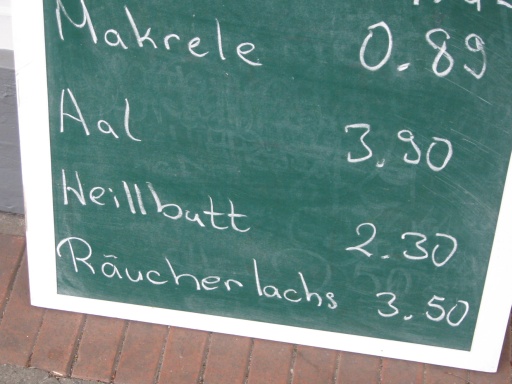 Makrele 0.89
Aal 3.90
Heillbutt 2.30
Räucherlachs 3.50